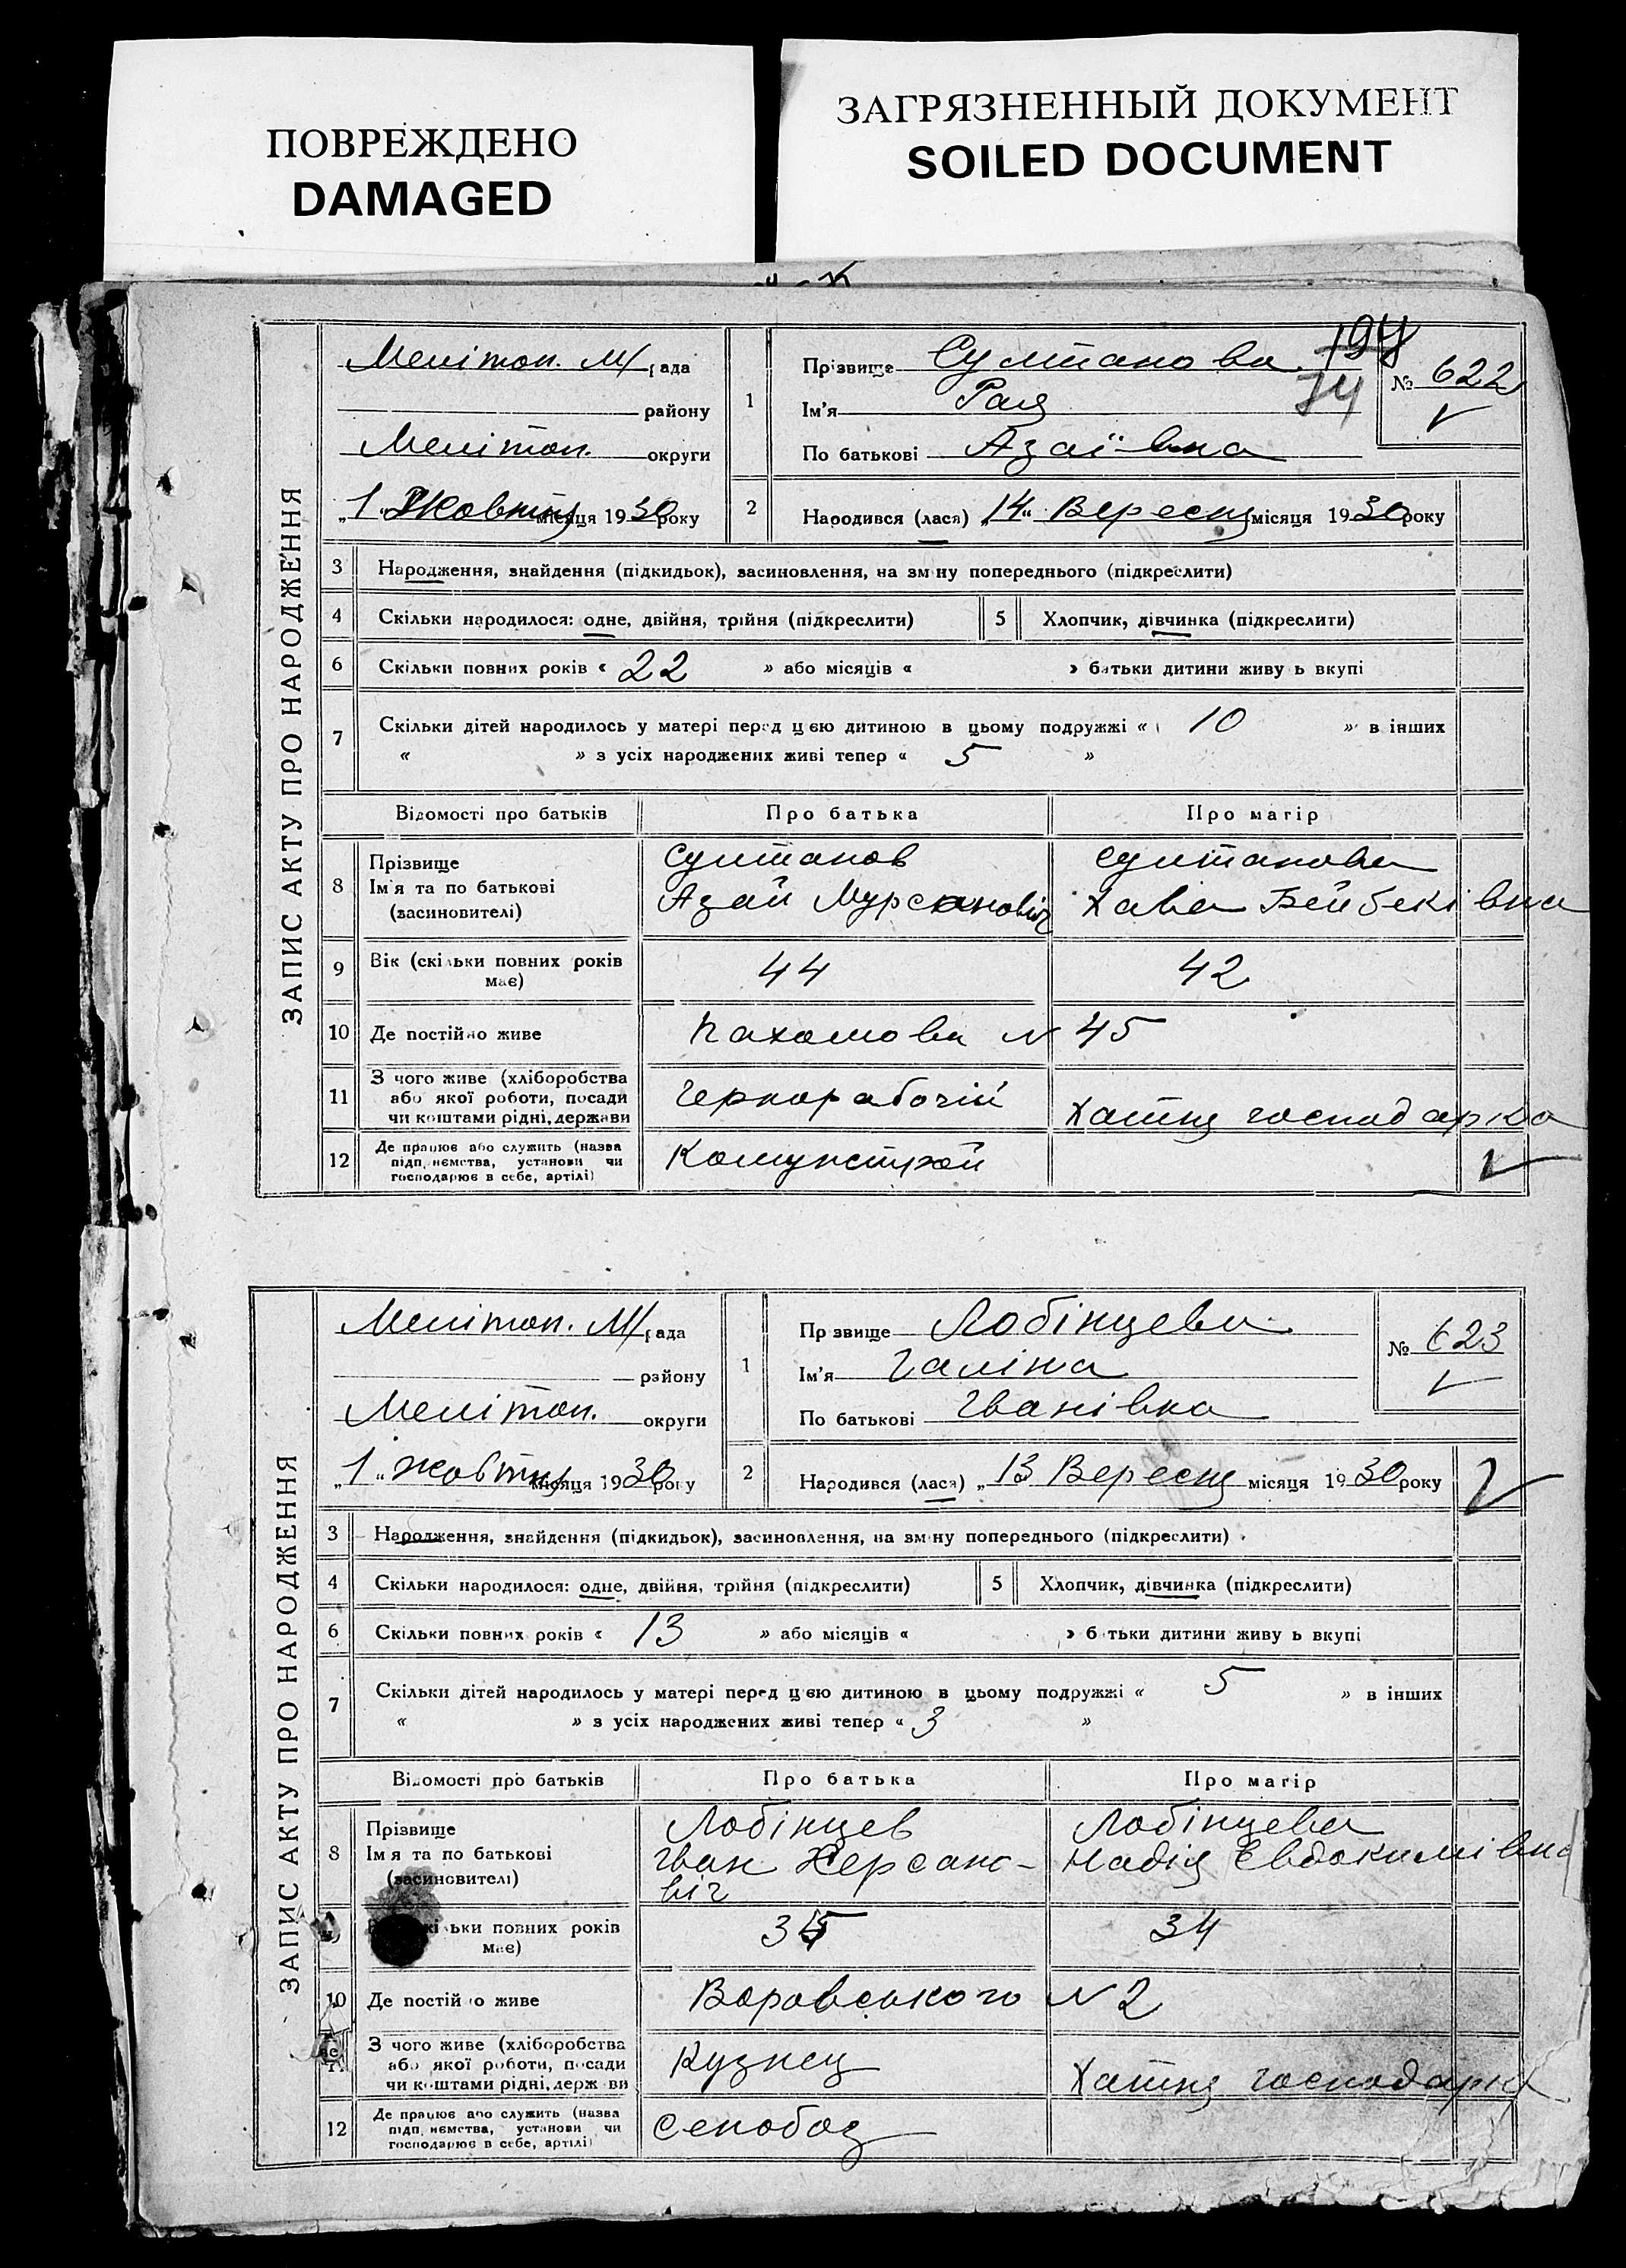 ПОВРЕЖДЕНО
DAMAGED
ЗАГРЯЗНЕННЫЙ ДОКУМЕНТ
SOILED DOCUMENT
ЗАПИС АКТУ ПРО НАРОДЖЕННЯ
Меліток. М/рада
району
Мелітоп. округи
„1" Жовтня місяця 1930 року
1
Прізвище Султанова
Ім'я Рая
По батькові Азаївна
194
74
№ 622
2
Народився (лася) „14" Вересня місяця 1930 року
3 Народження, знайдення (підкидьок), засиновлення, на зміну попереднього (підкреслити)
4 Скільки народилося: одне, двійня, трійня (підкреслити) 5 Хлопчик, дівчинка (підкреслити)
6 Скільки повних років « 22 » або місяців « » батьки дитини живуть вкупі
7 Скільки дітей народилось у матері перед цією дитиною в цьому подружжі « 10 » в інших
« » з усіх народжених живі тепер « 5 »
Відомості про батьків Про батька Про матір
8 Прізвище
Ім'я та по батькові
(засиновителі)
Султанов
Азай Мурсанович
Султанова
Хава Бейбеківна
9 Вік (скільки повних років має) 44 42
10 Де постійно живе Пахомова N 45
11 З чого живе (хліборобства
або якої роботи, посади
чи коштами рідні, держави
Чернорабочій
Хатня господарка
12 Де працює або служить (назва
підприємства, установи чи
господарює в себе, артілі)
Комунстрой
ЗАПИС АКТУ ПРО НАРОДЖЕННЯ
Мелітоп. М/рада
району
Мелітоп. округи
„1" Жовтня місяця 1930 року
1
Прізвище Лобінцева
Ім'я Галіна
По батькові Іванівна
№ 623
2
Народився (лася) „13 Вересня місяця 1930 року
3 Народження, знайдення (підкидьок), засиновлення, на зміну попереднього (підкреслити)
4 Скільки народилося: одне, двійня, трійня (підкреслити) 5 Хлопчик, дівчинка (підкреслити)
6 Скільки повних років « 13 » або місяців « » батьки дитини живуть вкупі
7 Скільки дітей народилось у матері перед цією дитиною в цьому подружжі « 5 » в інших
« » з усіх народжених живі тепер « 3 »
Відомості про батьків Про батька Про матір
8 Прізвище
Ім'я та по батькові
(засиновителі)
Лобінцев
Іван Херсано-
віч
Лобінцева
Надія Евдокимівна
Вік (скільки повних років має) 35 34
10 Де постійно живе Воровського N 2
З чого живе (хліборобства
або якої роботи, посади
чи коштами рідні, держави
Кузнец
Хатня господарка
12 Де працює або служить (назва
підприємства, установи чи
господарює в себе, артілі)